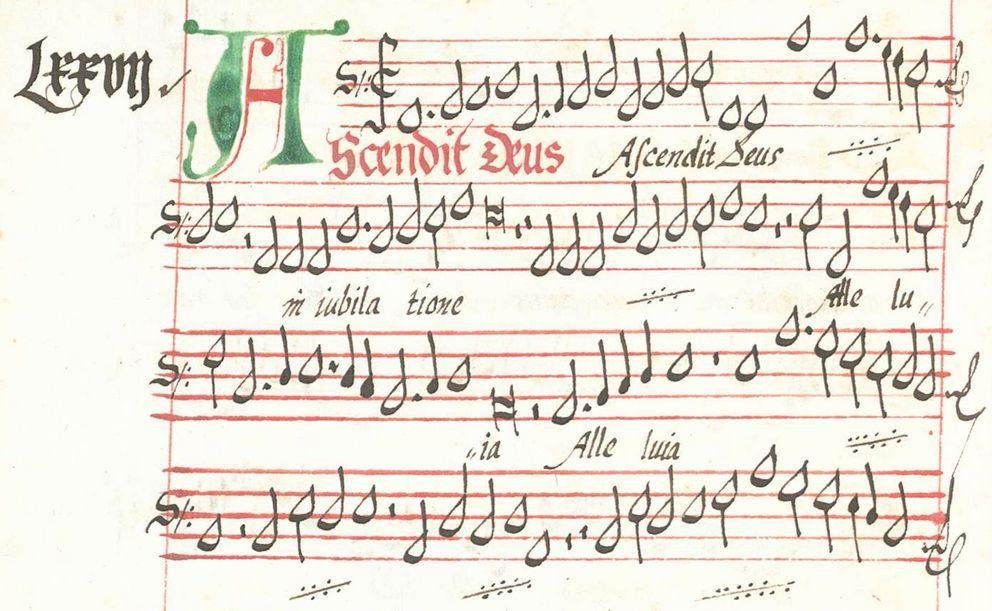 Lxxvij
AScendit Deus Ascendit Deus
in iubila tione Alle lu„
„ia Alle luia